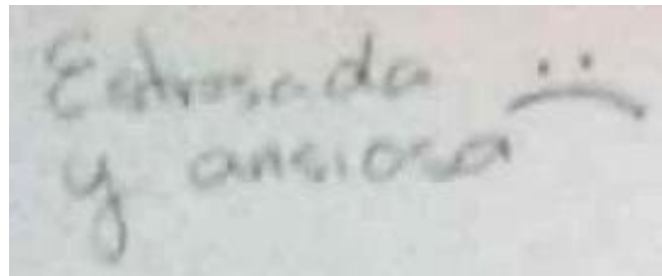 Estresada :(
y ansiosa